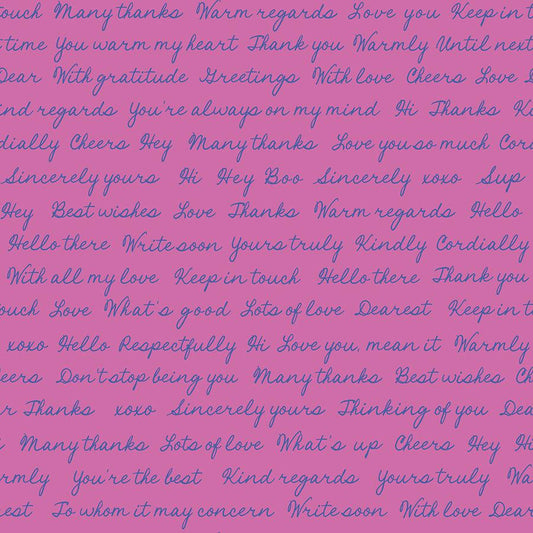 touch Many thanks Warm regards Love you Keep in t
time You warm my heart Thank you Warmly Until next
Dear With gratitude Greetings With love Cheers Love
ind regards You're always on my mind Hi Thanks K
dially Cheers Hey Many thanks Love you so much Cor
Sincerely yours Hi Hey Boo Sincerely xoxo Sup
Hey Best wishes Love Thanks Warm regards Hello
Hello there Write soon Yours truly Kindly Cordially
With all my love Keep in touch Hello there Thank you
ouch Love What's good Lots of love Dearest Keep in t
xoxo Hello Respectfully Hi Love you, mean it Warmly
eers Don't stop being you Many thanks Best wishes Ch
r Thanks xoxo Sincerely yours Thinking of you Dea
Many thanks Lots of love What's up Cheers Hey Hi
rmly You're the best Kind regards Yours truly Wa
rest To whom it may concern Write soon With love Dear